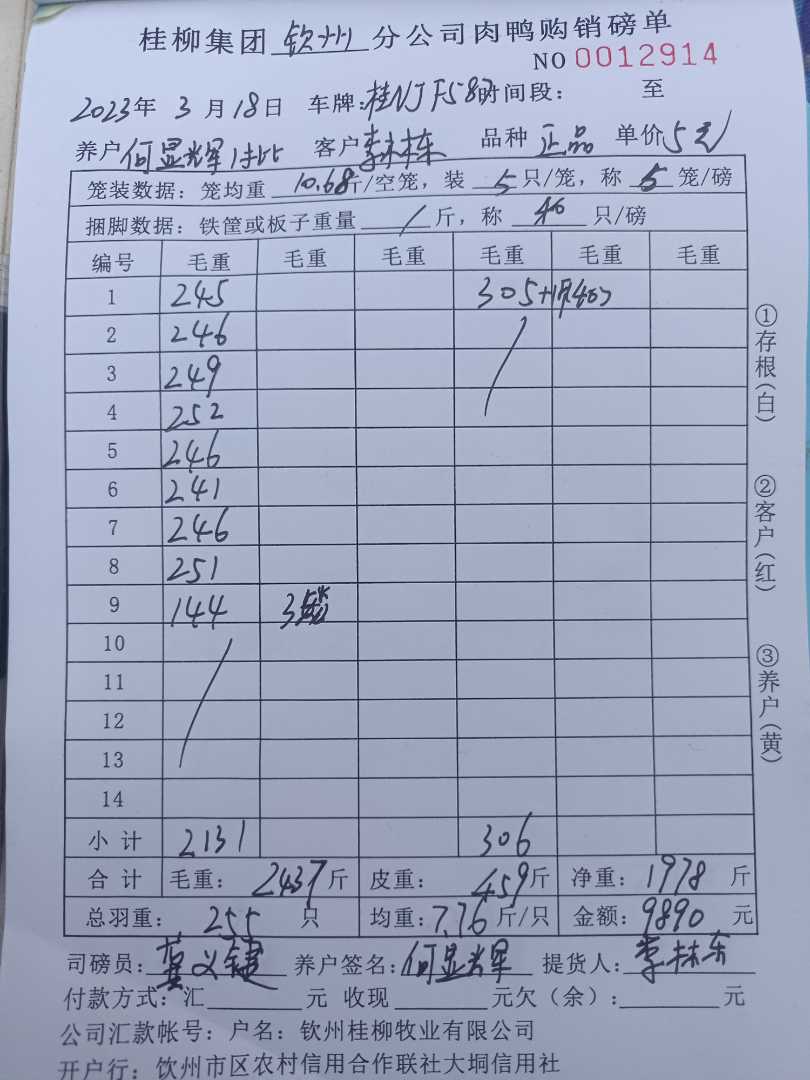 桂柳集团 钦州 分公司肉鸭购销磅单
NO 0012914
2023年 3月18日 车牌:桂NJF587 时间段: 至
养户 何显辉 客户 李林栋 品种 正品 单价 5元
笼装数据:笼均重 10.68斤/空笼,装 5 只/笼,称 5 笼/磅
捆脚数据:铁筐或板子重量 / 斤,称 40 只/磅
编号 毛重 毛重 毛重 毛重 毛重 毛重
1 245 305
2 246
3 249
4 252
5 246
6 241
7 246
8 251
9 144 3
10
11
12
13
14
小计 2131 306
合计 毛重: 2437斤 皮重: 459斤 净重: 1978 斤
总羽重: 255 只 均重: 7.76 斤/只 金额: 9890 元
司磅员: 养户签名: 何显辉 提货人: 李林东
付款方式:汇 元 收现 元欠(余): 元
公司汇款帐号:户名:钦州桂柳牧业有限公司
开户行:钦州市区农村信用合作联社大垌信用社
①存根(白)
②客户(红)
③养户(黄)